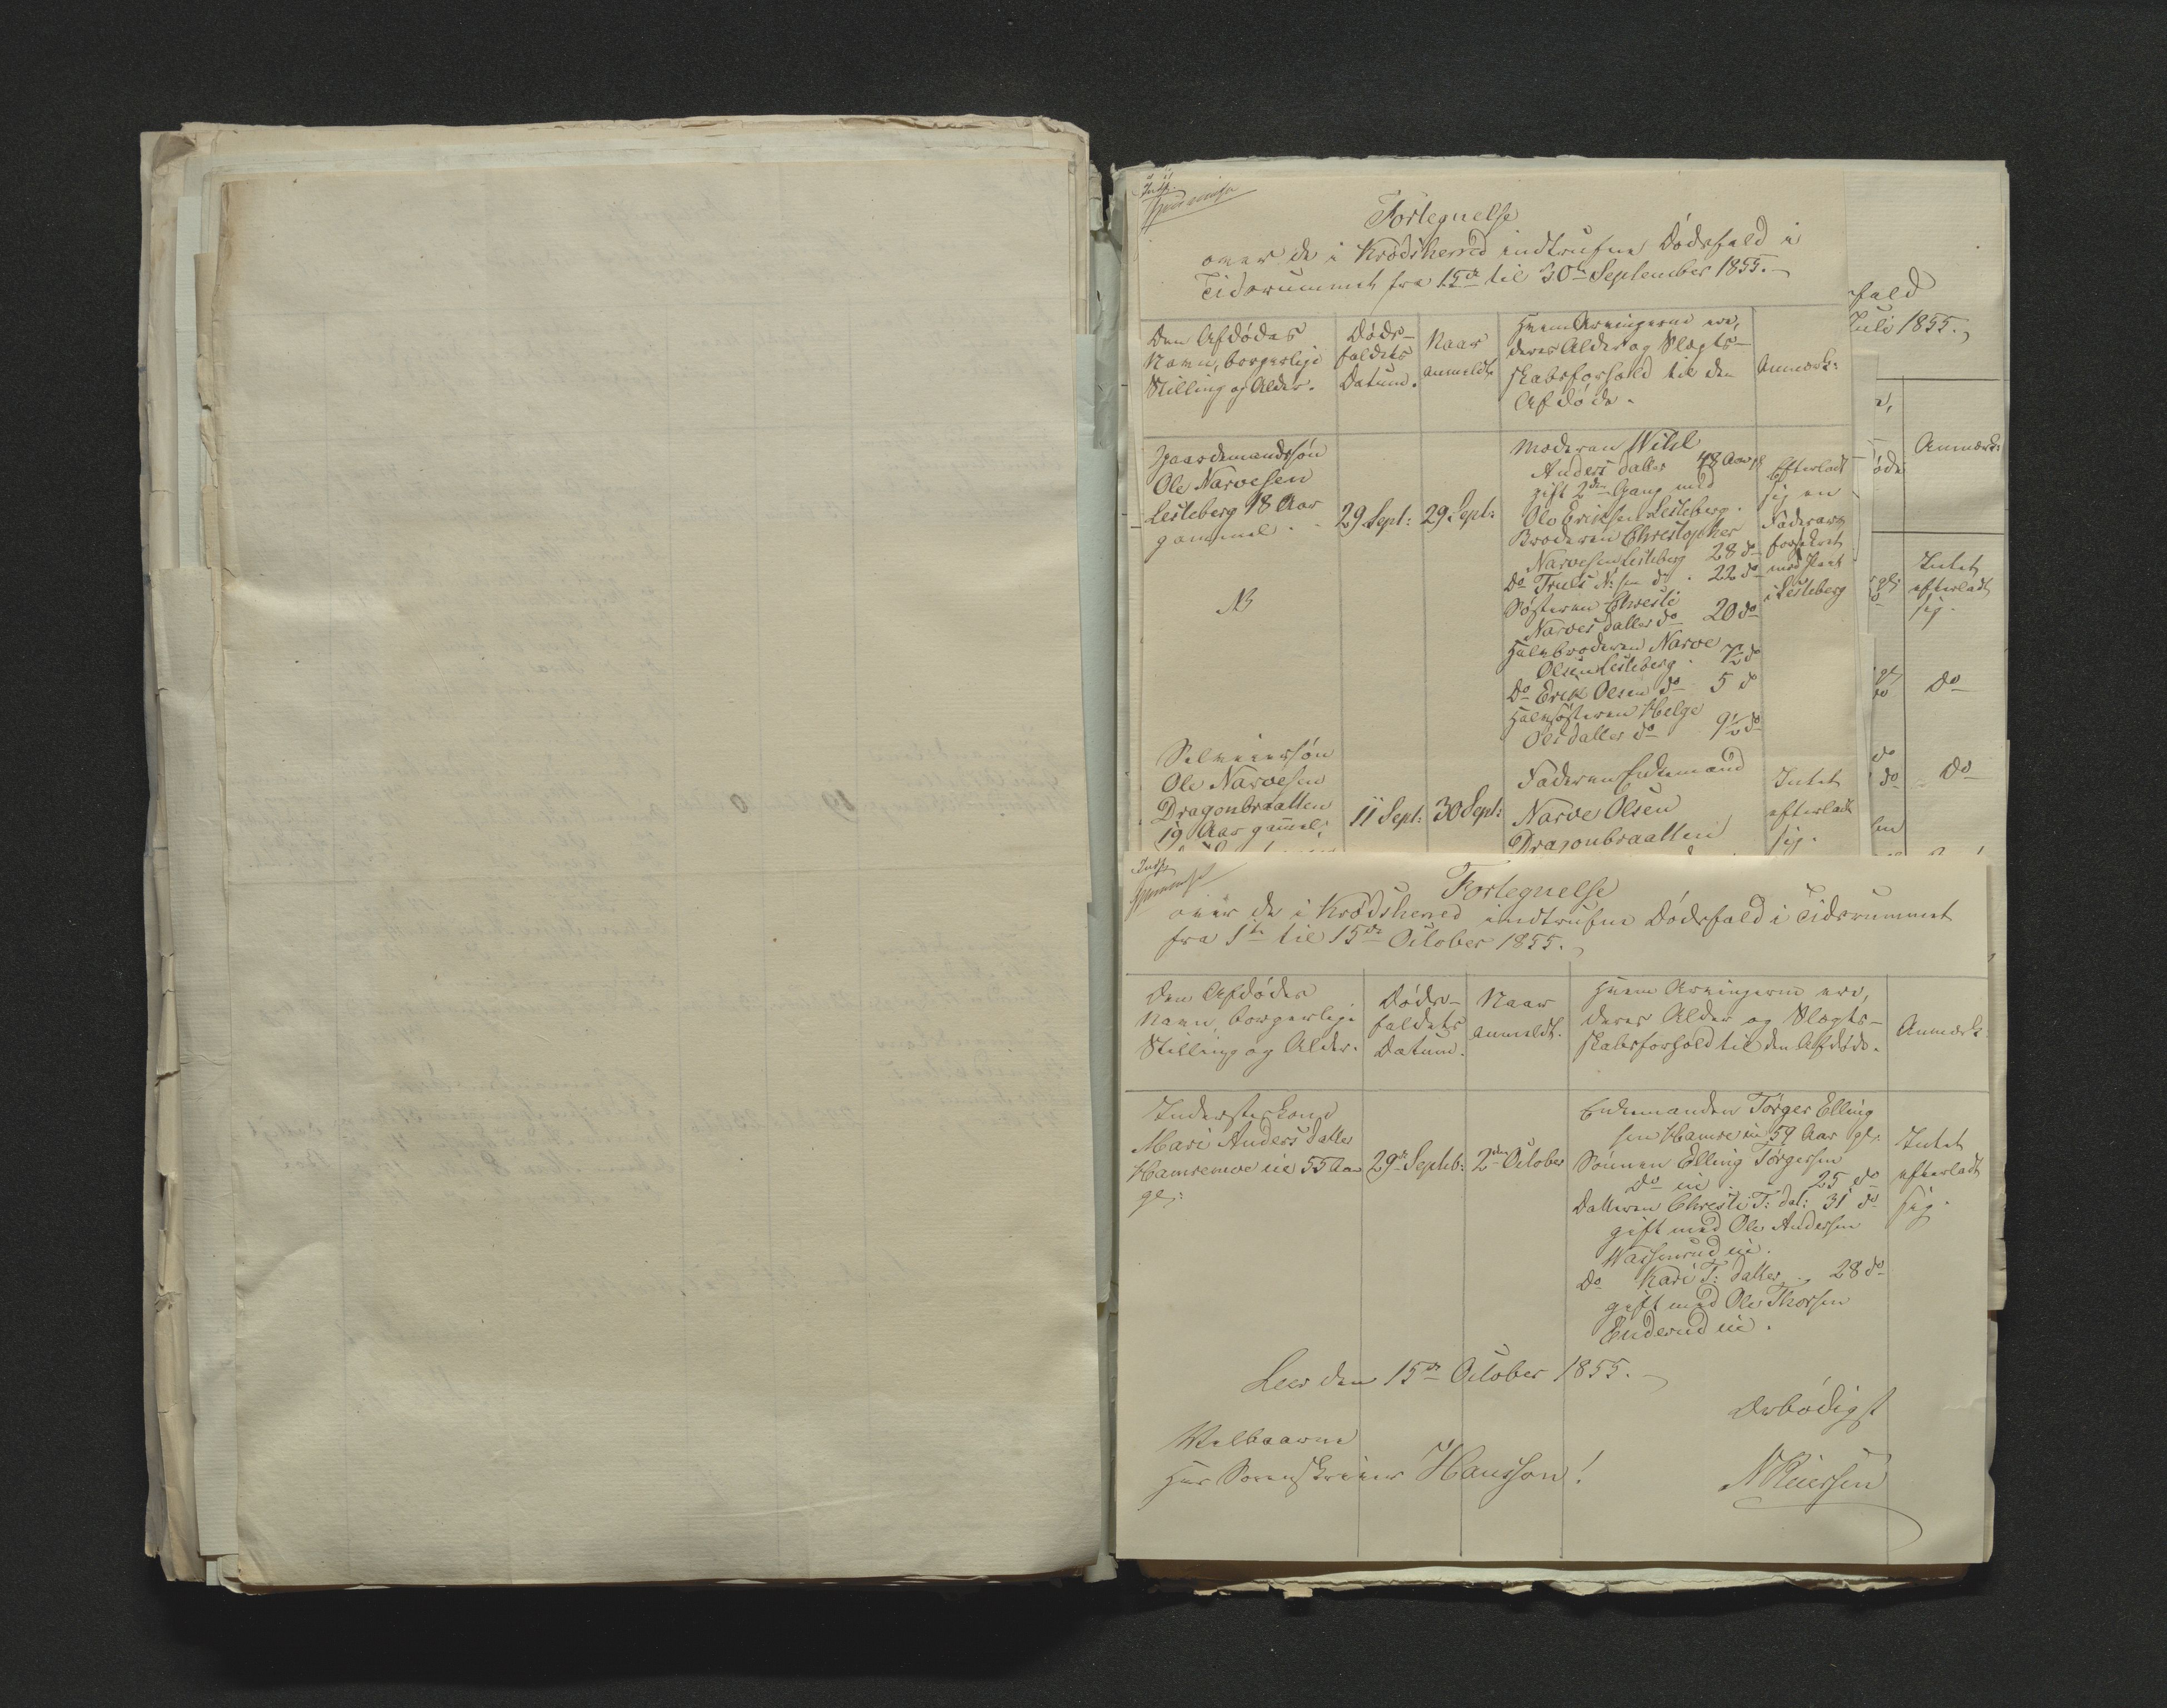 Indf.
Fortegnelse
over de i Krödsherred indtrufne Dödsfald i
Tidsrummet fra 15de til 30te September 1855.
Den Afdödes
Navn, borgerlige
Stilling og Alder.
Döds-
faldets
Datum.
Naar
anmeldt
Hvem Arvingerne ere,
deres Alder og Slægt-
skabsforhold til den
Afdöde.
Anmærk:
Gaardemandssön
Ole Narvesen
Lesteberg 18 Aar
gammel.
NB
29 Sept:
29 Sept:
Moderen
Anders datter 48 Aar
gift 2den Gang med
Ole Eriksen Lesteberg.
Broderen Christopher
Narvesen Lesteberg 28 do
Do Truls N:sen do. 22 do
Sösteren Christi
Narvesdatter do 20 do
Halvbroderen Narve
Olsen Lesteberg. 7½ do
Do Erik Olsen do 5 do
Halvsösteren Helge
Olsdatter do 9½ do
Efterladt
sig en
Faderarv
forsikret
med Pant
i Lesteberg
Selveiersön
Ole Narvesen
Dragonbraatten
19 Aar gammel,
11 Sept:
30 Sept:
Faderen Enkemand
Narve Olsen
Dragonbraatten
Intet
efterladt
sig.
fald
Juli 1855.
Anmærk:
Intet
efterladt
sig.
Do
Do
Indf.
Fortegnelse
over de i Krödsherred indtrufne Dödsfald i Tidsrummet
fra 1te til 15de October 1855.
Den Afdödes
Navn, borgerlige
Stilling og Alder.
Döds-
faldets
Datum.
Naar
anmeldt.
Hvem Arvingerne ere,
deres Alder og Slægt-
skabsforhold til den Afdöde.
Anmærk:
Inderstekone
Mari Anders datter
Hamremoe eie 55 Aar
gl:
29de Septeb:
2den October
Enkemanden Törger Elling
sen Hamre eie 59 Aar gl.
Sönnen Elling Törgersen
Do eie. 25 do
Datteren Christi T: dat: 31 do
gift med Ole Andersen
eie.
Do Kari T: datter. 28 do
gift med Ole Thorsen
Enderud eie.
Intet
efterladt
sig.
Leer den 15de October 1855.
Ærbödigst
Velbaarne
Herr Sorenskriver Hansson!
N Reiersen